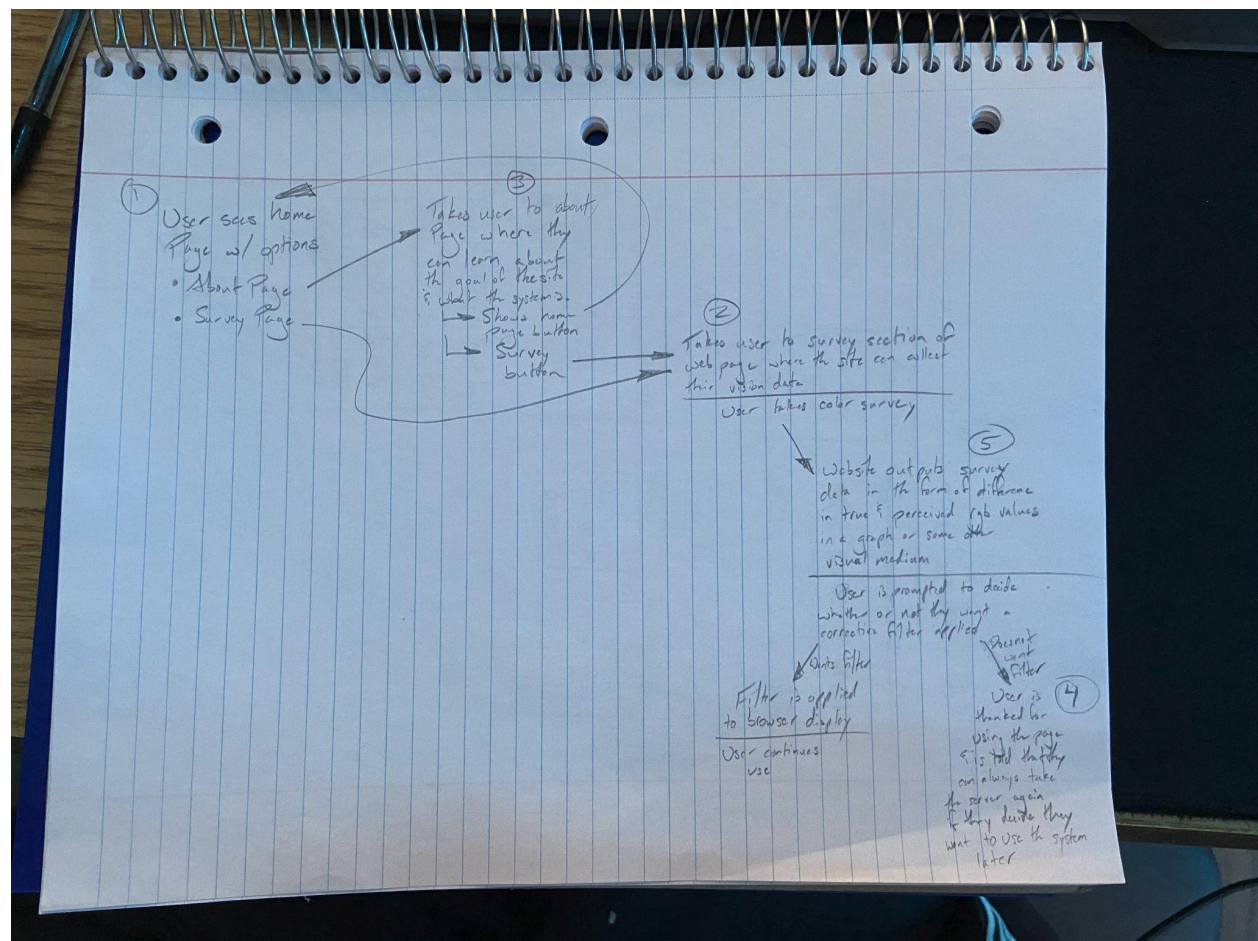 1
User sees home
Page w/ options
• About Page
• Survey Page
3
Takes user to about
Page where they
can learn about
the goal of the site
& what the system is.
Shows home
page button
Survey
button
2
Takes user to survey section of
web page where the site can collect
their vision data
User takes color survey
5
Website outputs survey
data in the form of difference
in true & perceived rgb values
in a graph or some other
visual medium
User is prompted to decide
whether or not they want a
corrective filter applied
Wants filter
Doesnot
want
filter
Filter is applied
to browser display
User continues
use
4
User is
thanked for
using the page
& is told that they
can always take
the server again
if they decide they
want to use the system
later